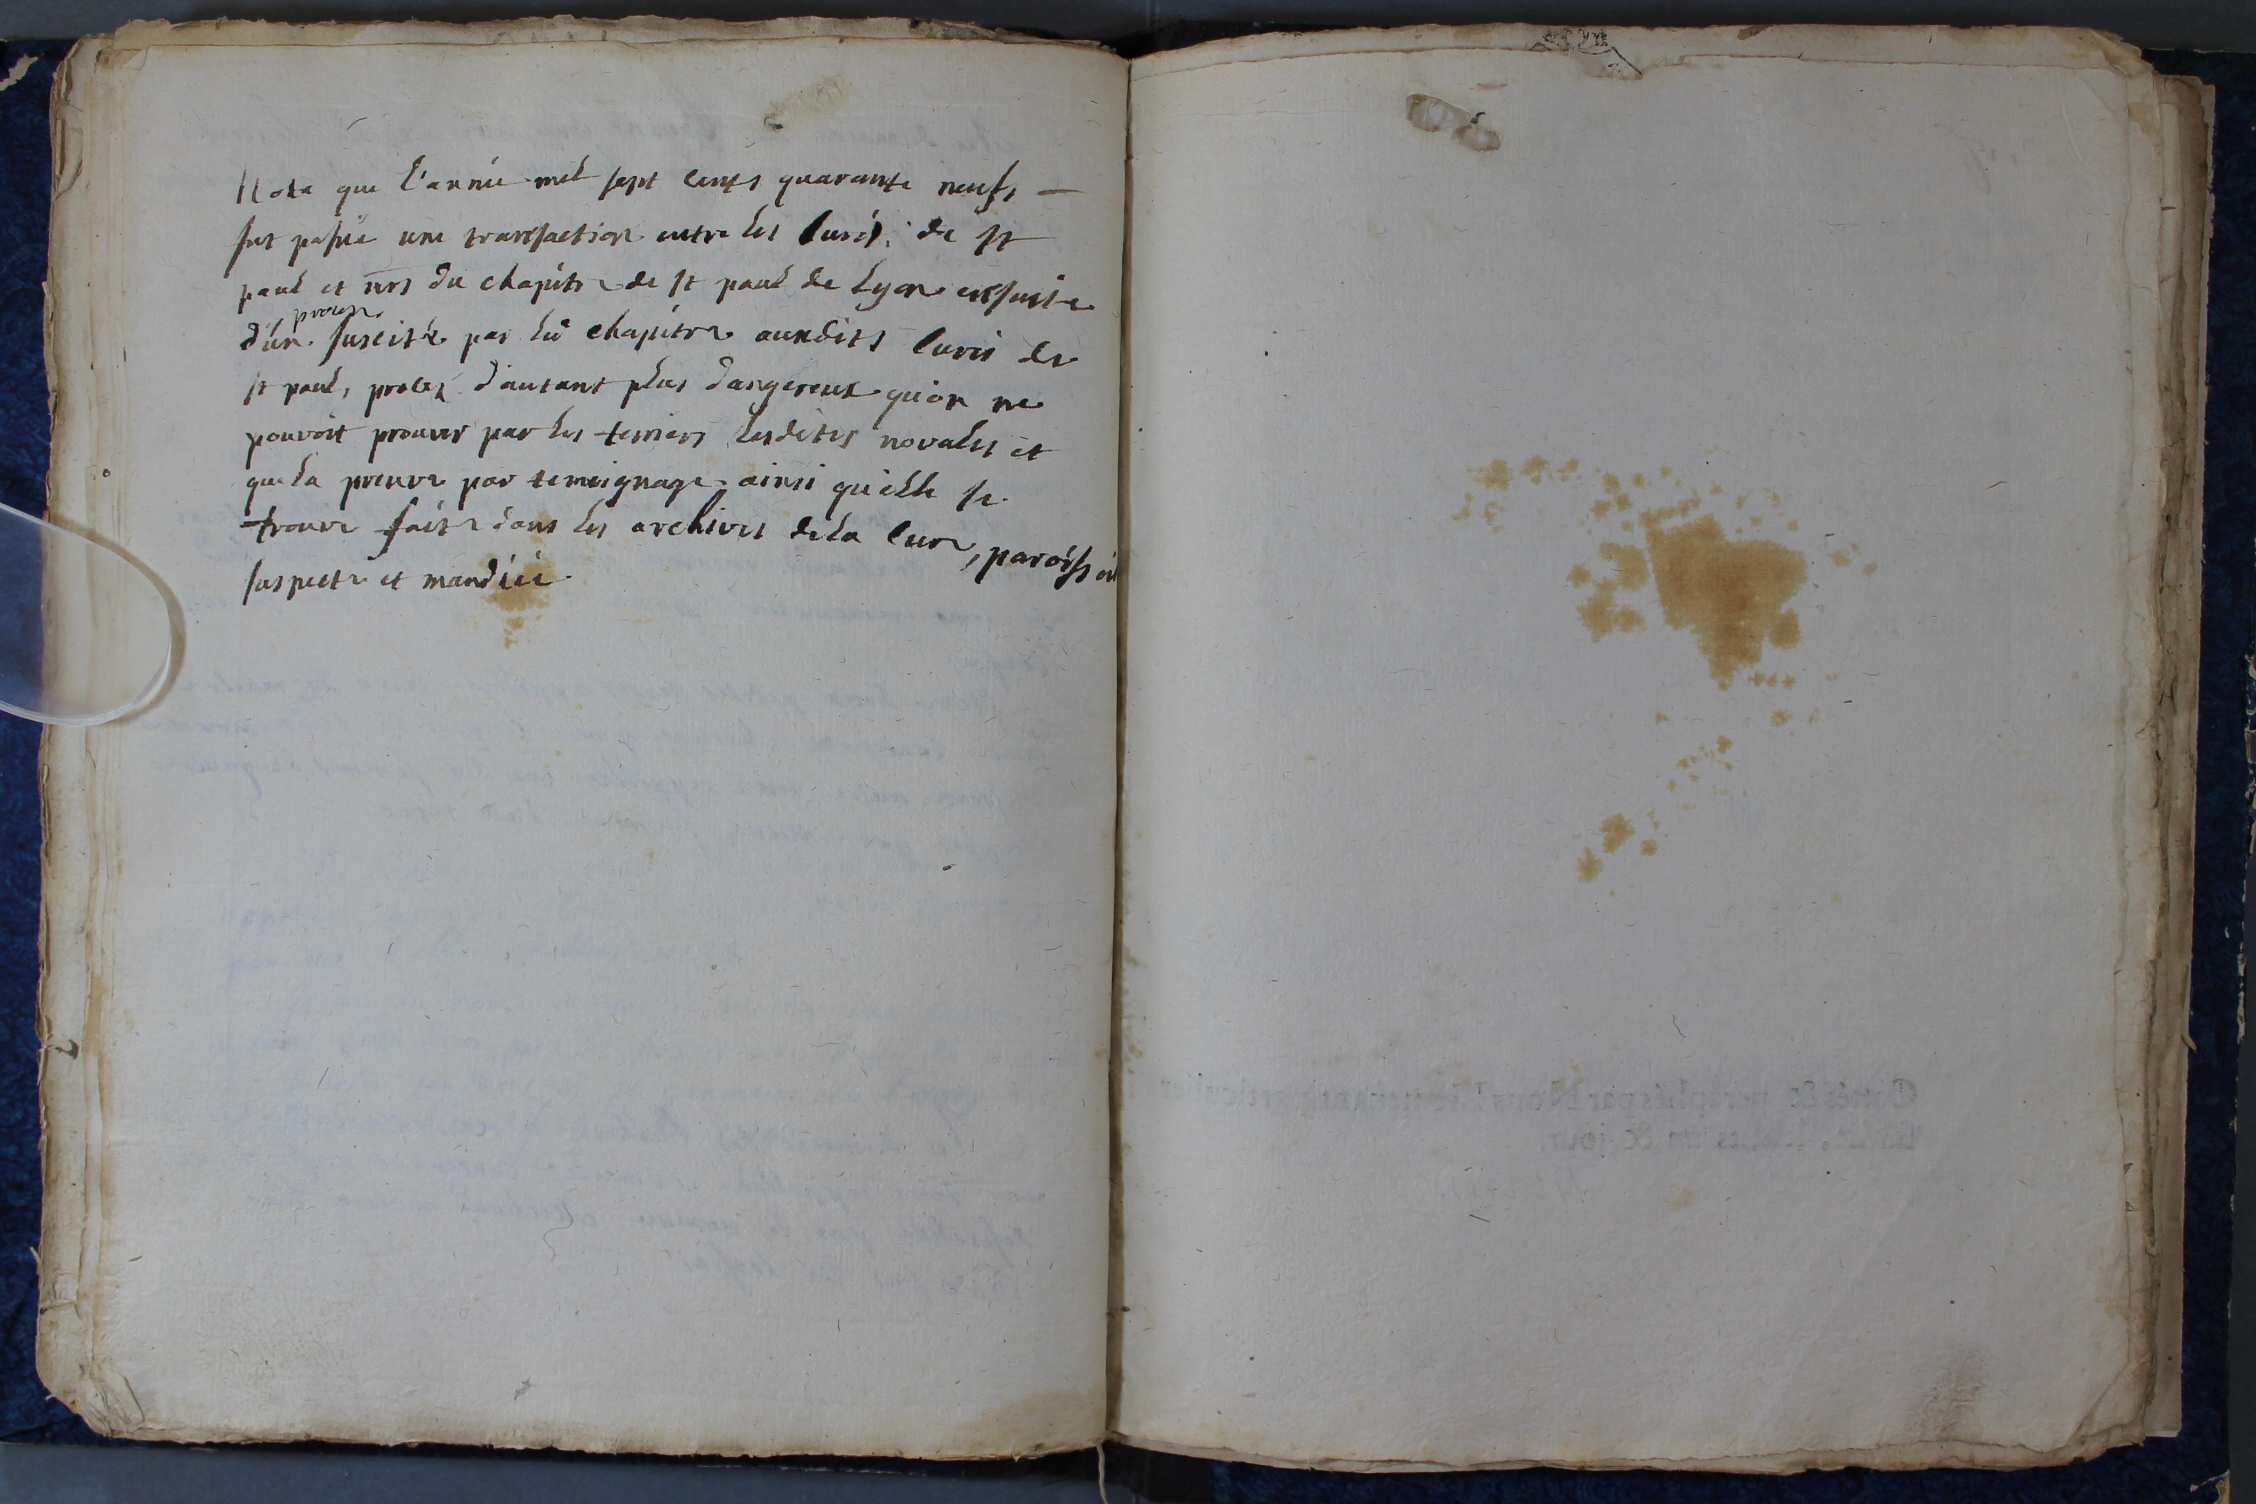 Nota que l'année mil sept cents quarante neufs
fut passée une transaction entre les curés de st
paul et mrs du chapitre de st paul de Lyon ensuite
d'un procès suscité par led chapitre auxdits curés de
st paul, procez d'autant plus dangereux qu'on ne
pouvoit prouver par les terriers lesdites novales et
que la preuve par temoignage ainsi qu'elle se
trouve faite dans les archives de la cure, paroissoit
suspecte et mandiée